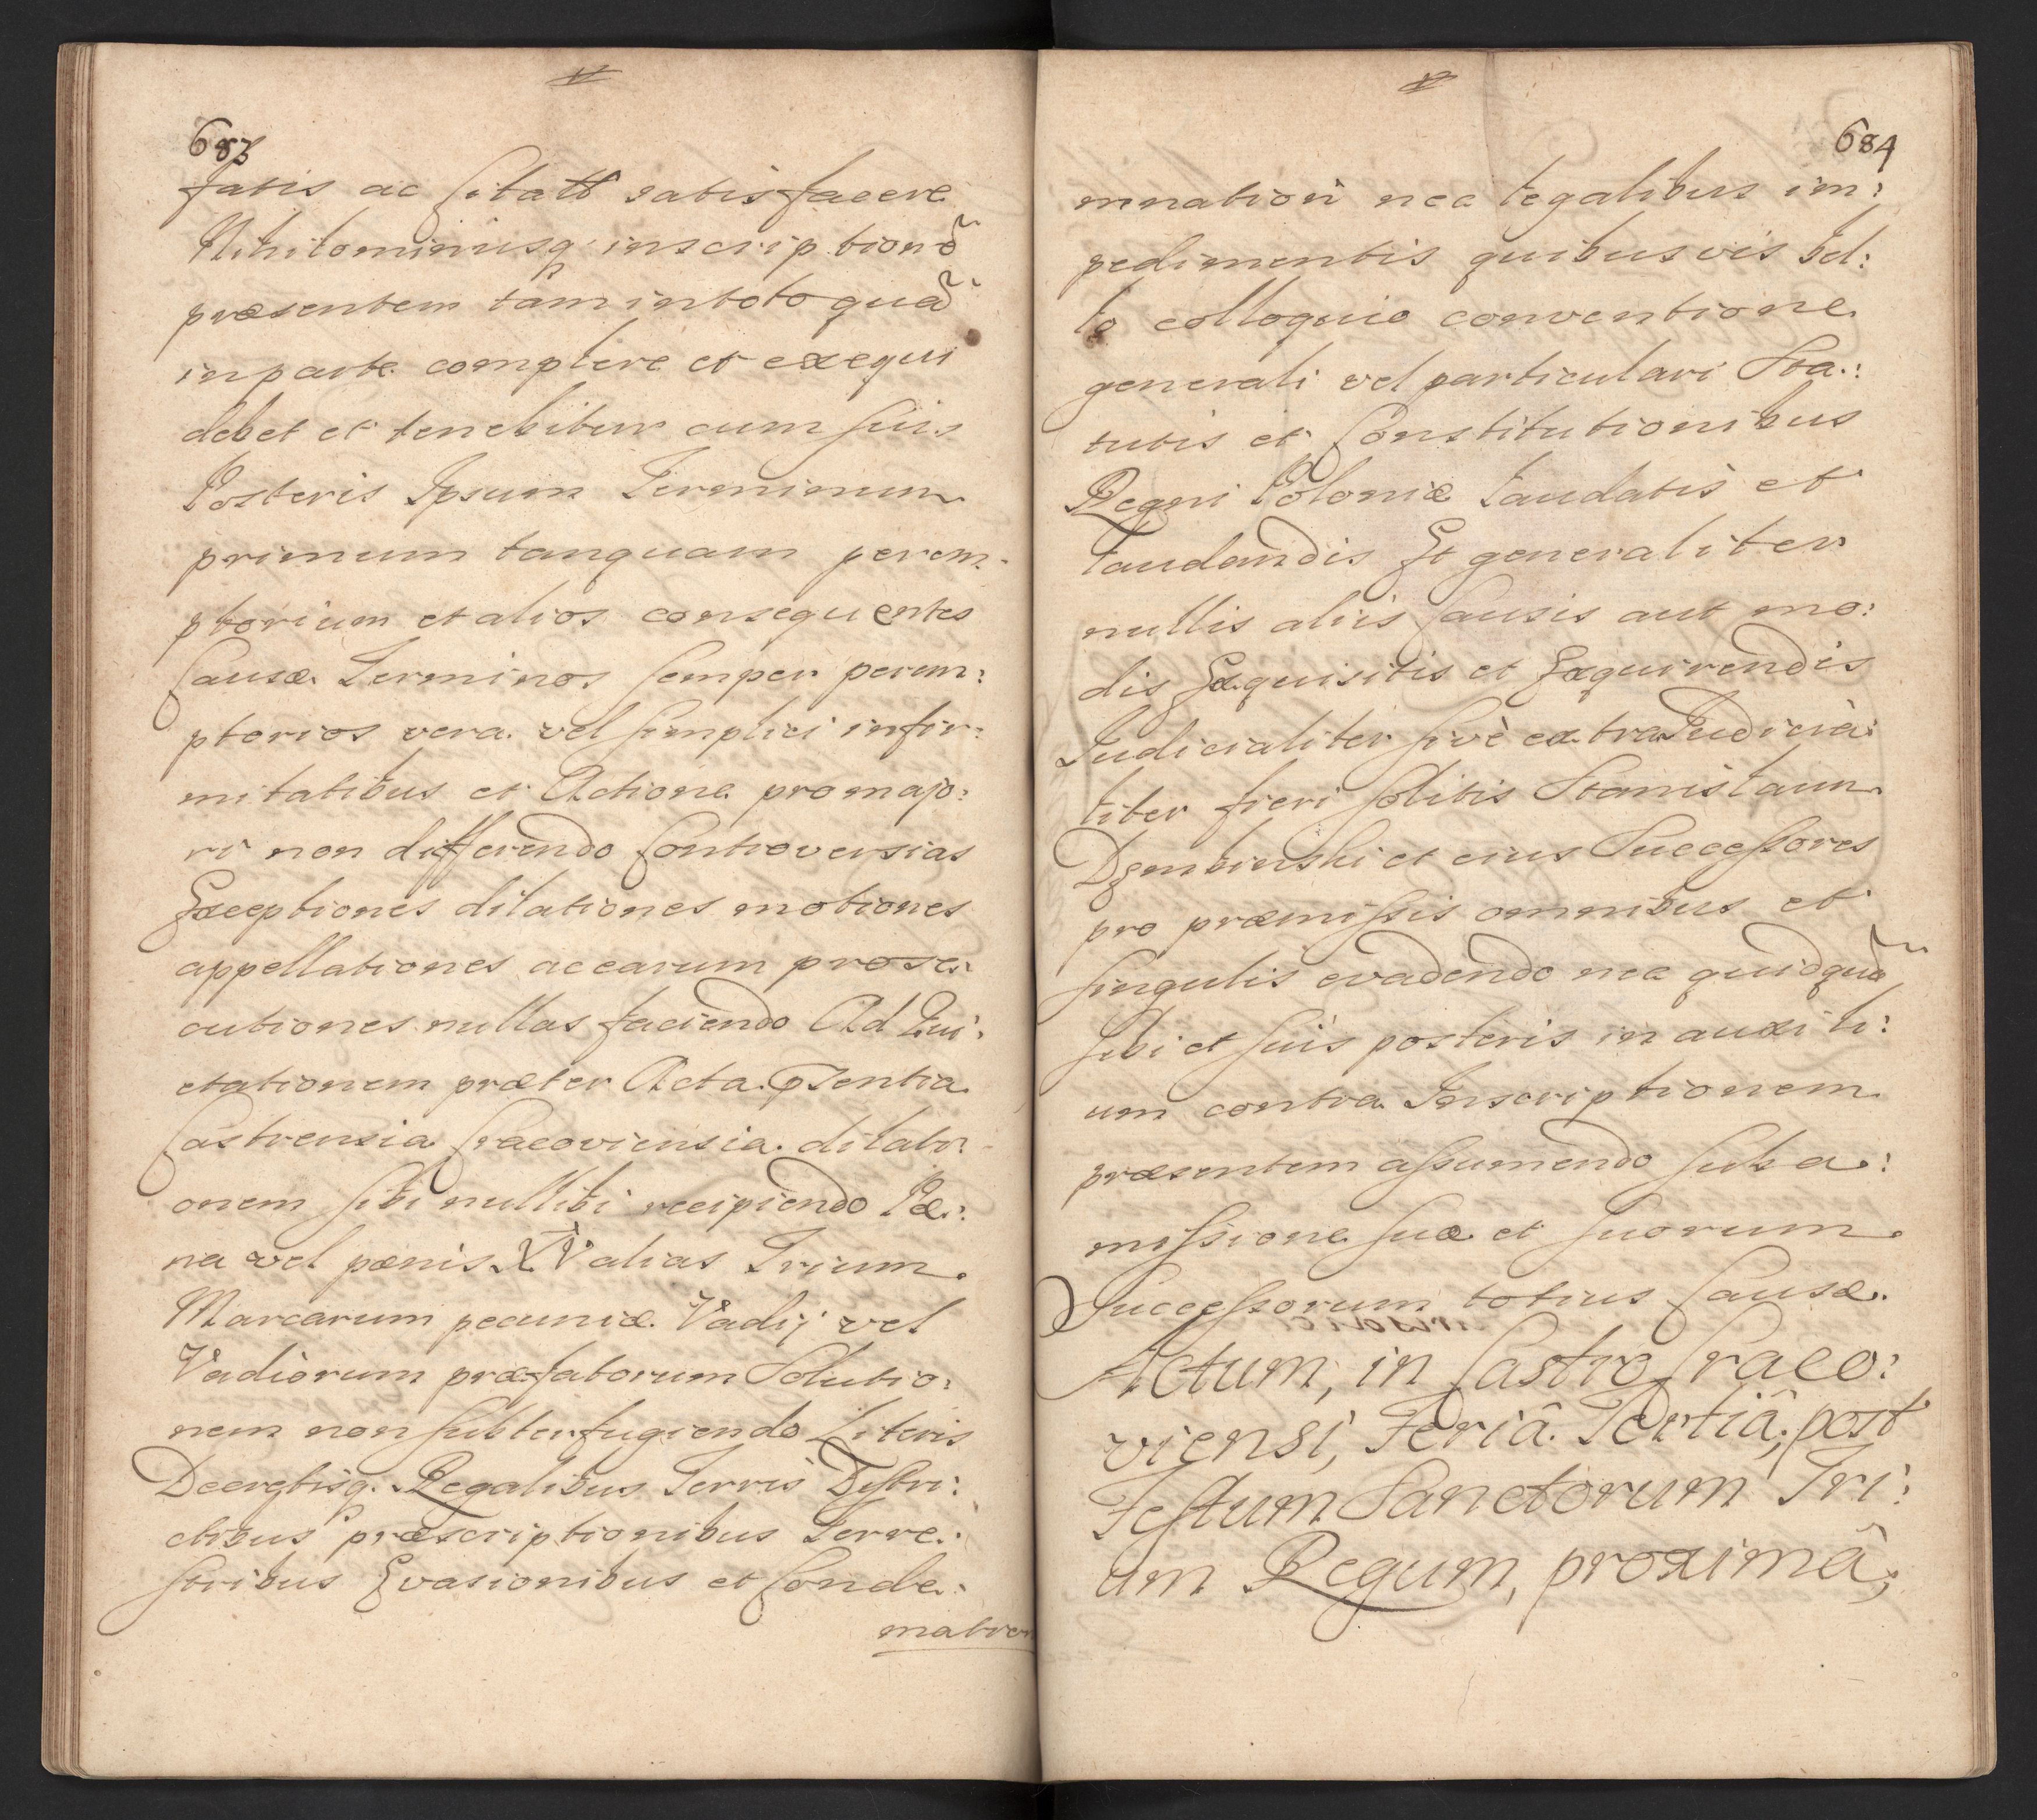 683
fatis ac Citatt satisfacere
Nihilominusq inscription&#772;e
præsentem tàm in toto quã
in parte complere et exequi
debet et tenebitur cum suis
Posteris Ipsum Terminum
primum tanquam perem-
ptorium et alios consequentes
Causæ Terminos semper perem:
ptorios vera vel simplici infir:
mitatibus et Actione pro majo:
ri non differendo Controversias
Exceptiones dilationes motiones
appellationes ac earum prose:
cutiones nullas faciendo Ad Qui:
etationem præter Acta pṡentia
Castrensia Cracoviensia dilati-
onem sibi nullibi recipiendo Pæ:
na vel pænis XV alias Trium
Marcarum pecuniæ Vadij vel
Vadiorum præfatorum Solutio:
nem non subterfugiendo Literis
Decretisq. Regalibus Terris Distri:
ctibus præscriptionibus Terre:
stribus Evasionibus et Conde:
mnation
684
mnationi nec legalibus im:
pedimentis quibusvis bel:
lo colloquio conventione
generali vel particulari Sta:
tutis et Constitutionibus
Regni Poloniæ laudatis et
laudandis Et generaliter
nullis aliis Causis aut mo:
dis Exquisitis et Exquirendis
Judicialiter sivè extra Judicia:
liter fieri solitis Stanislaum
Dzembinski et eius Successores
pro præmissis omnibus et
singulis evadendo nec quidquã
sibi et suis posteris in auxili:
um contra Inscriptionem
præsentem assumendo sub a:
missione sua et suorum
Successorum totius Causæ.
Actum, in Castro Craco:
viensi, Feriâ Tertiâ, post
Festum Sanctorum Tri:
um Regum, proximâ,